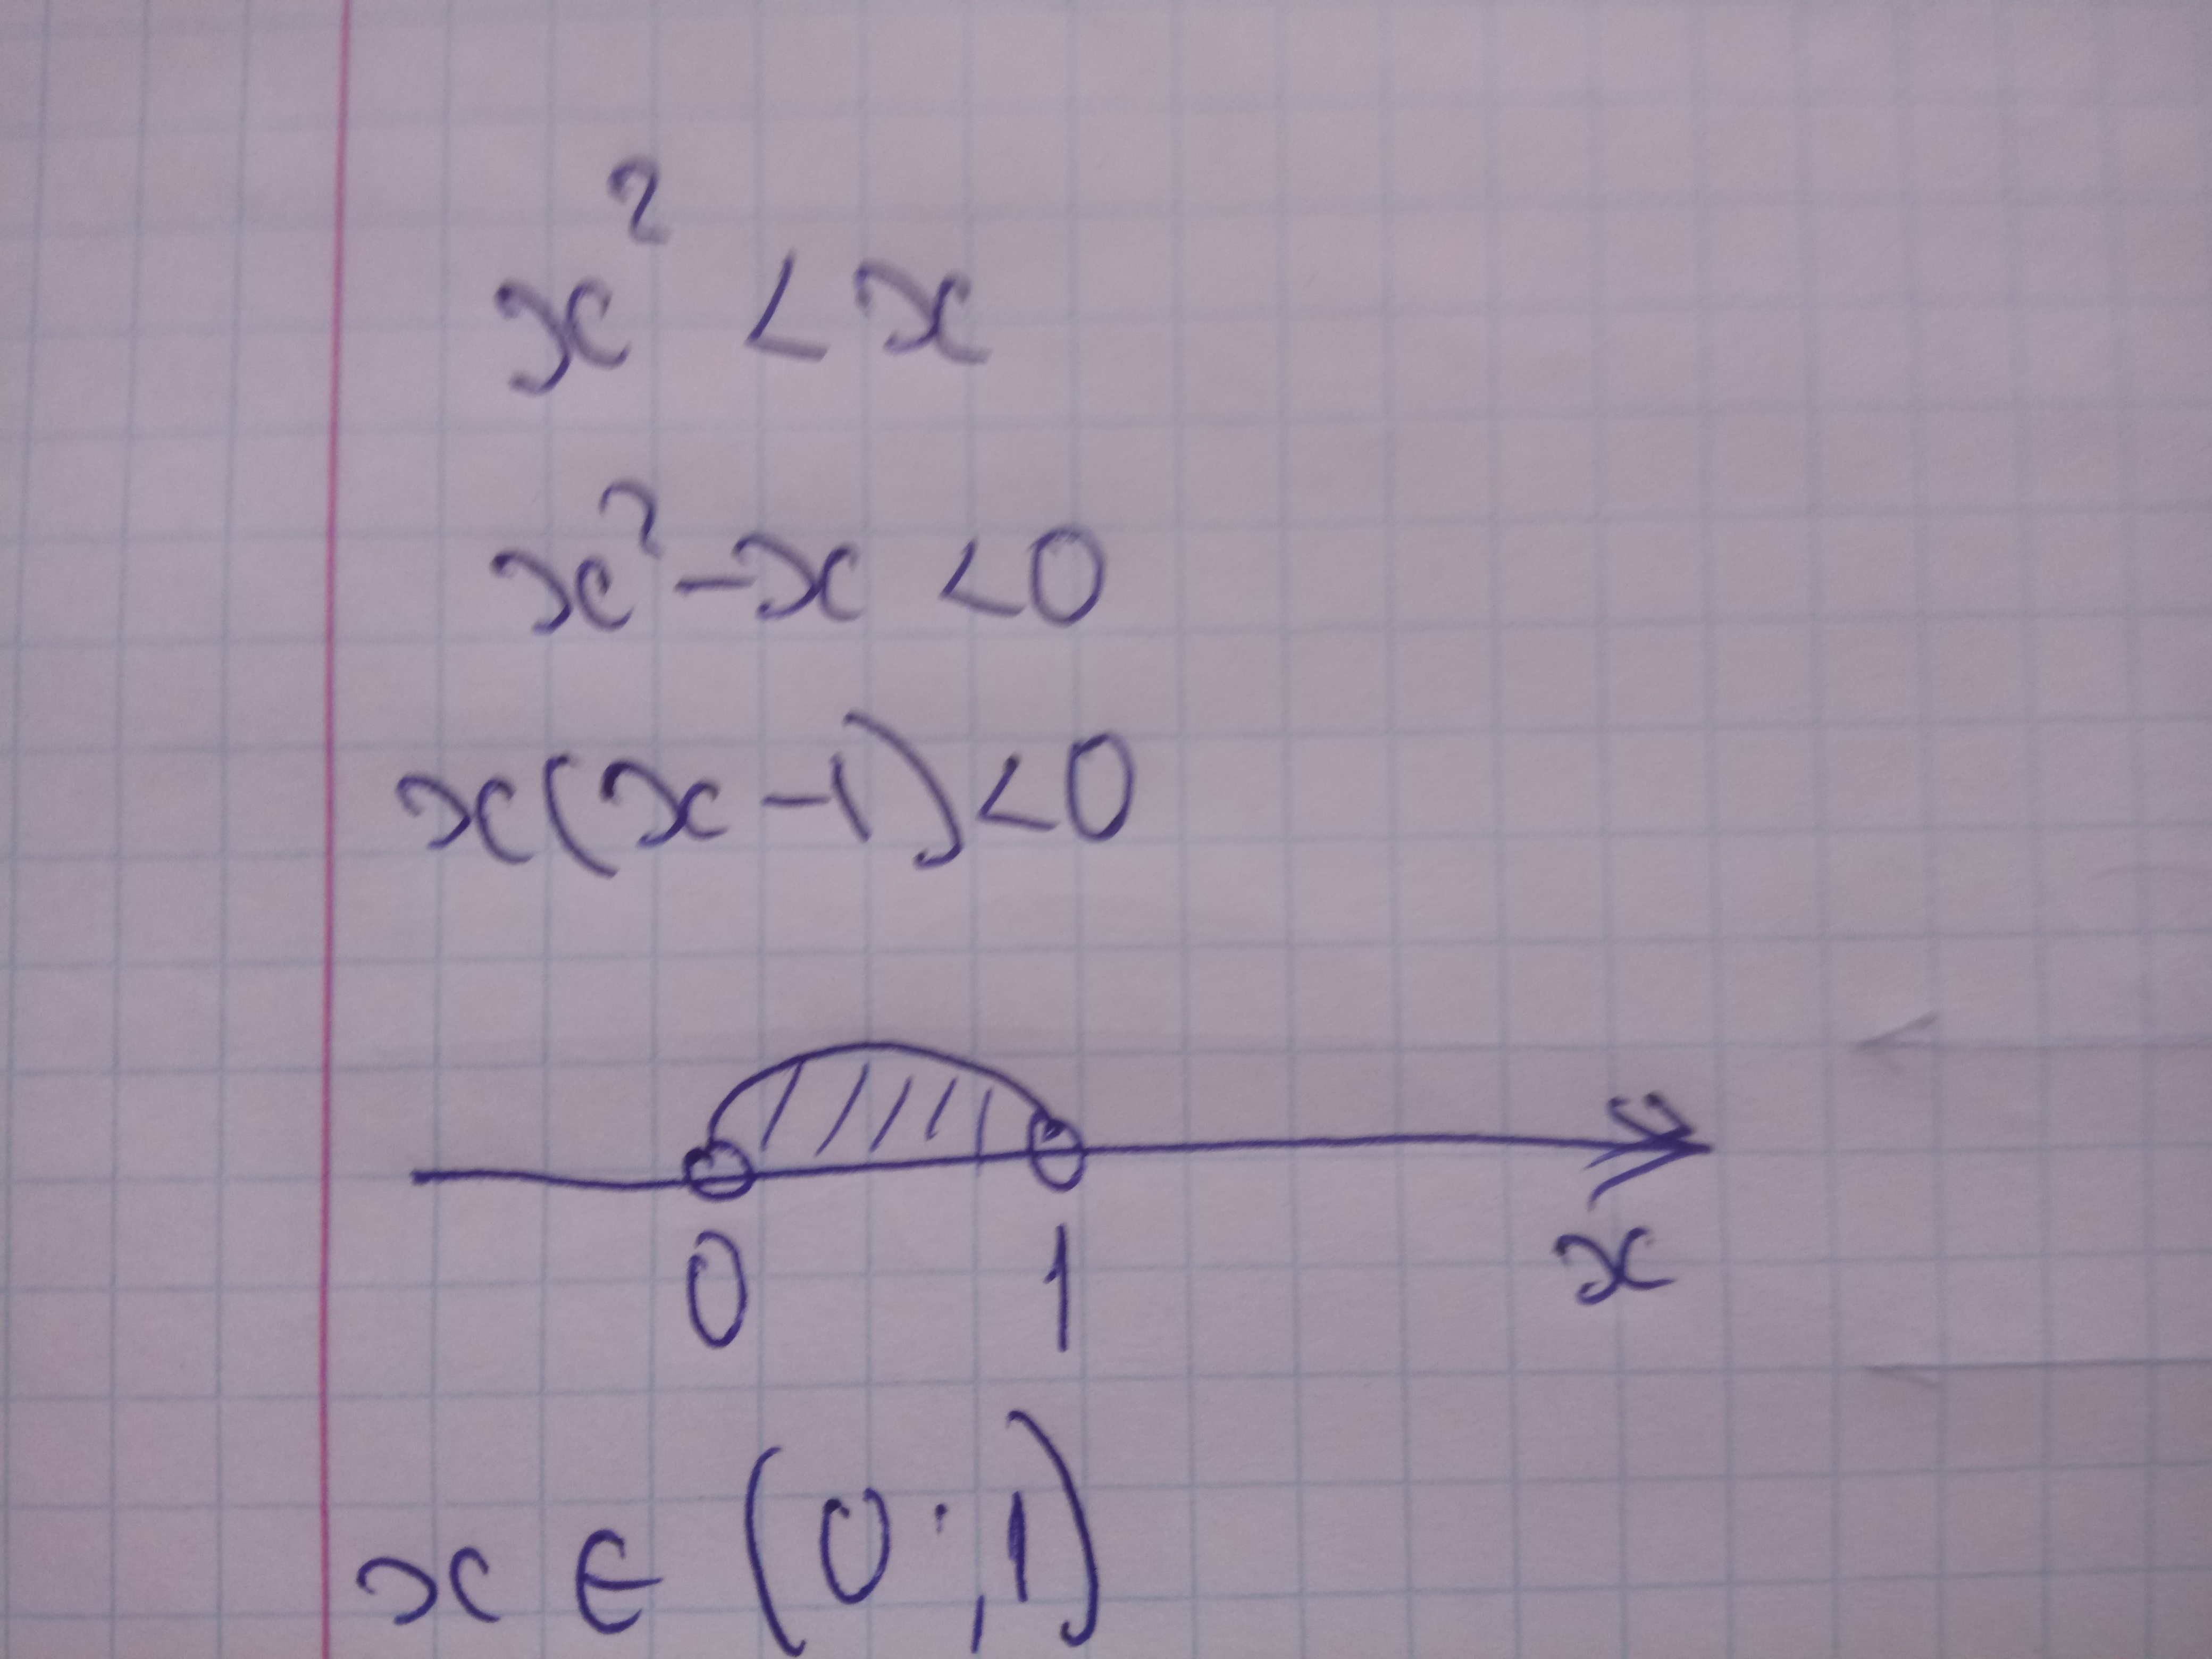 x² < x
x² - x < 0
x(x - 1) < 0
0 1 x
x ∈ (0; 1)